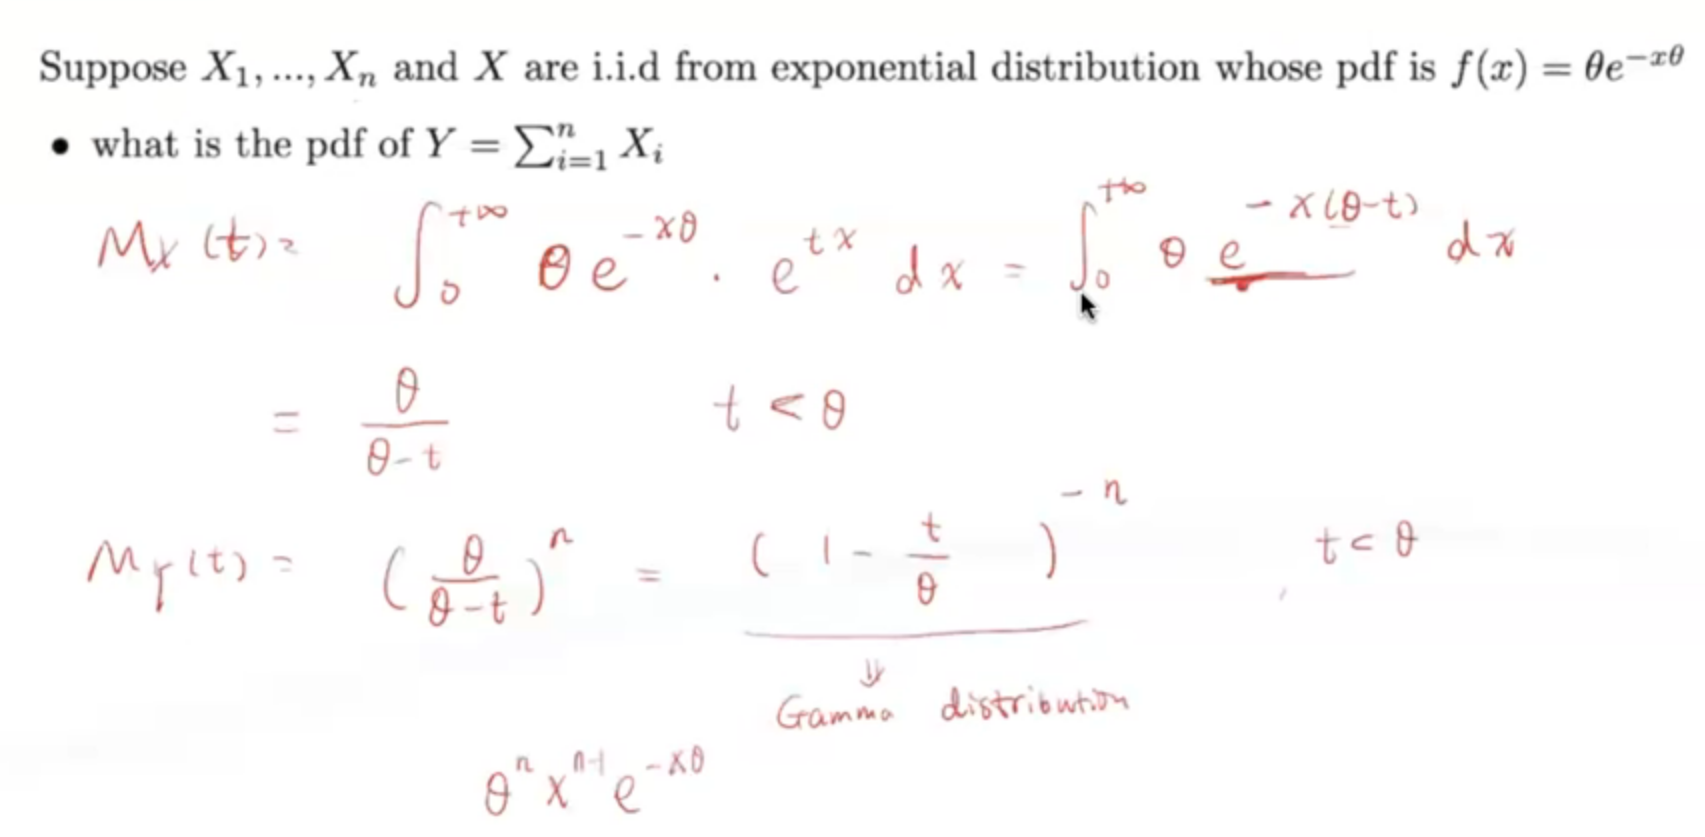 Suppose X₁, ..., Xₙ and X are i.i.d from exponential distribution whose pdf is f(x) = θe^{−xθ}
• what is the pdf of Y = ∑ⁿᵢ₌₁ Xᵢ
M_X(t) = ∫₀^{+∞} θe^{−xθ} · e^{tx} dx = ∫₀^{+∞} θ e^{−x(θ−t)} dx
= θ/(θ−t) t < θ
M_Y(t) = (θ/(θ−t))^n = (1 − t/θ)^{−n} , t < θ
⇓
Gamma distribution
θ^n x^{n−1} e^{−xθ}